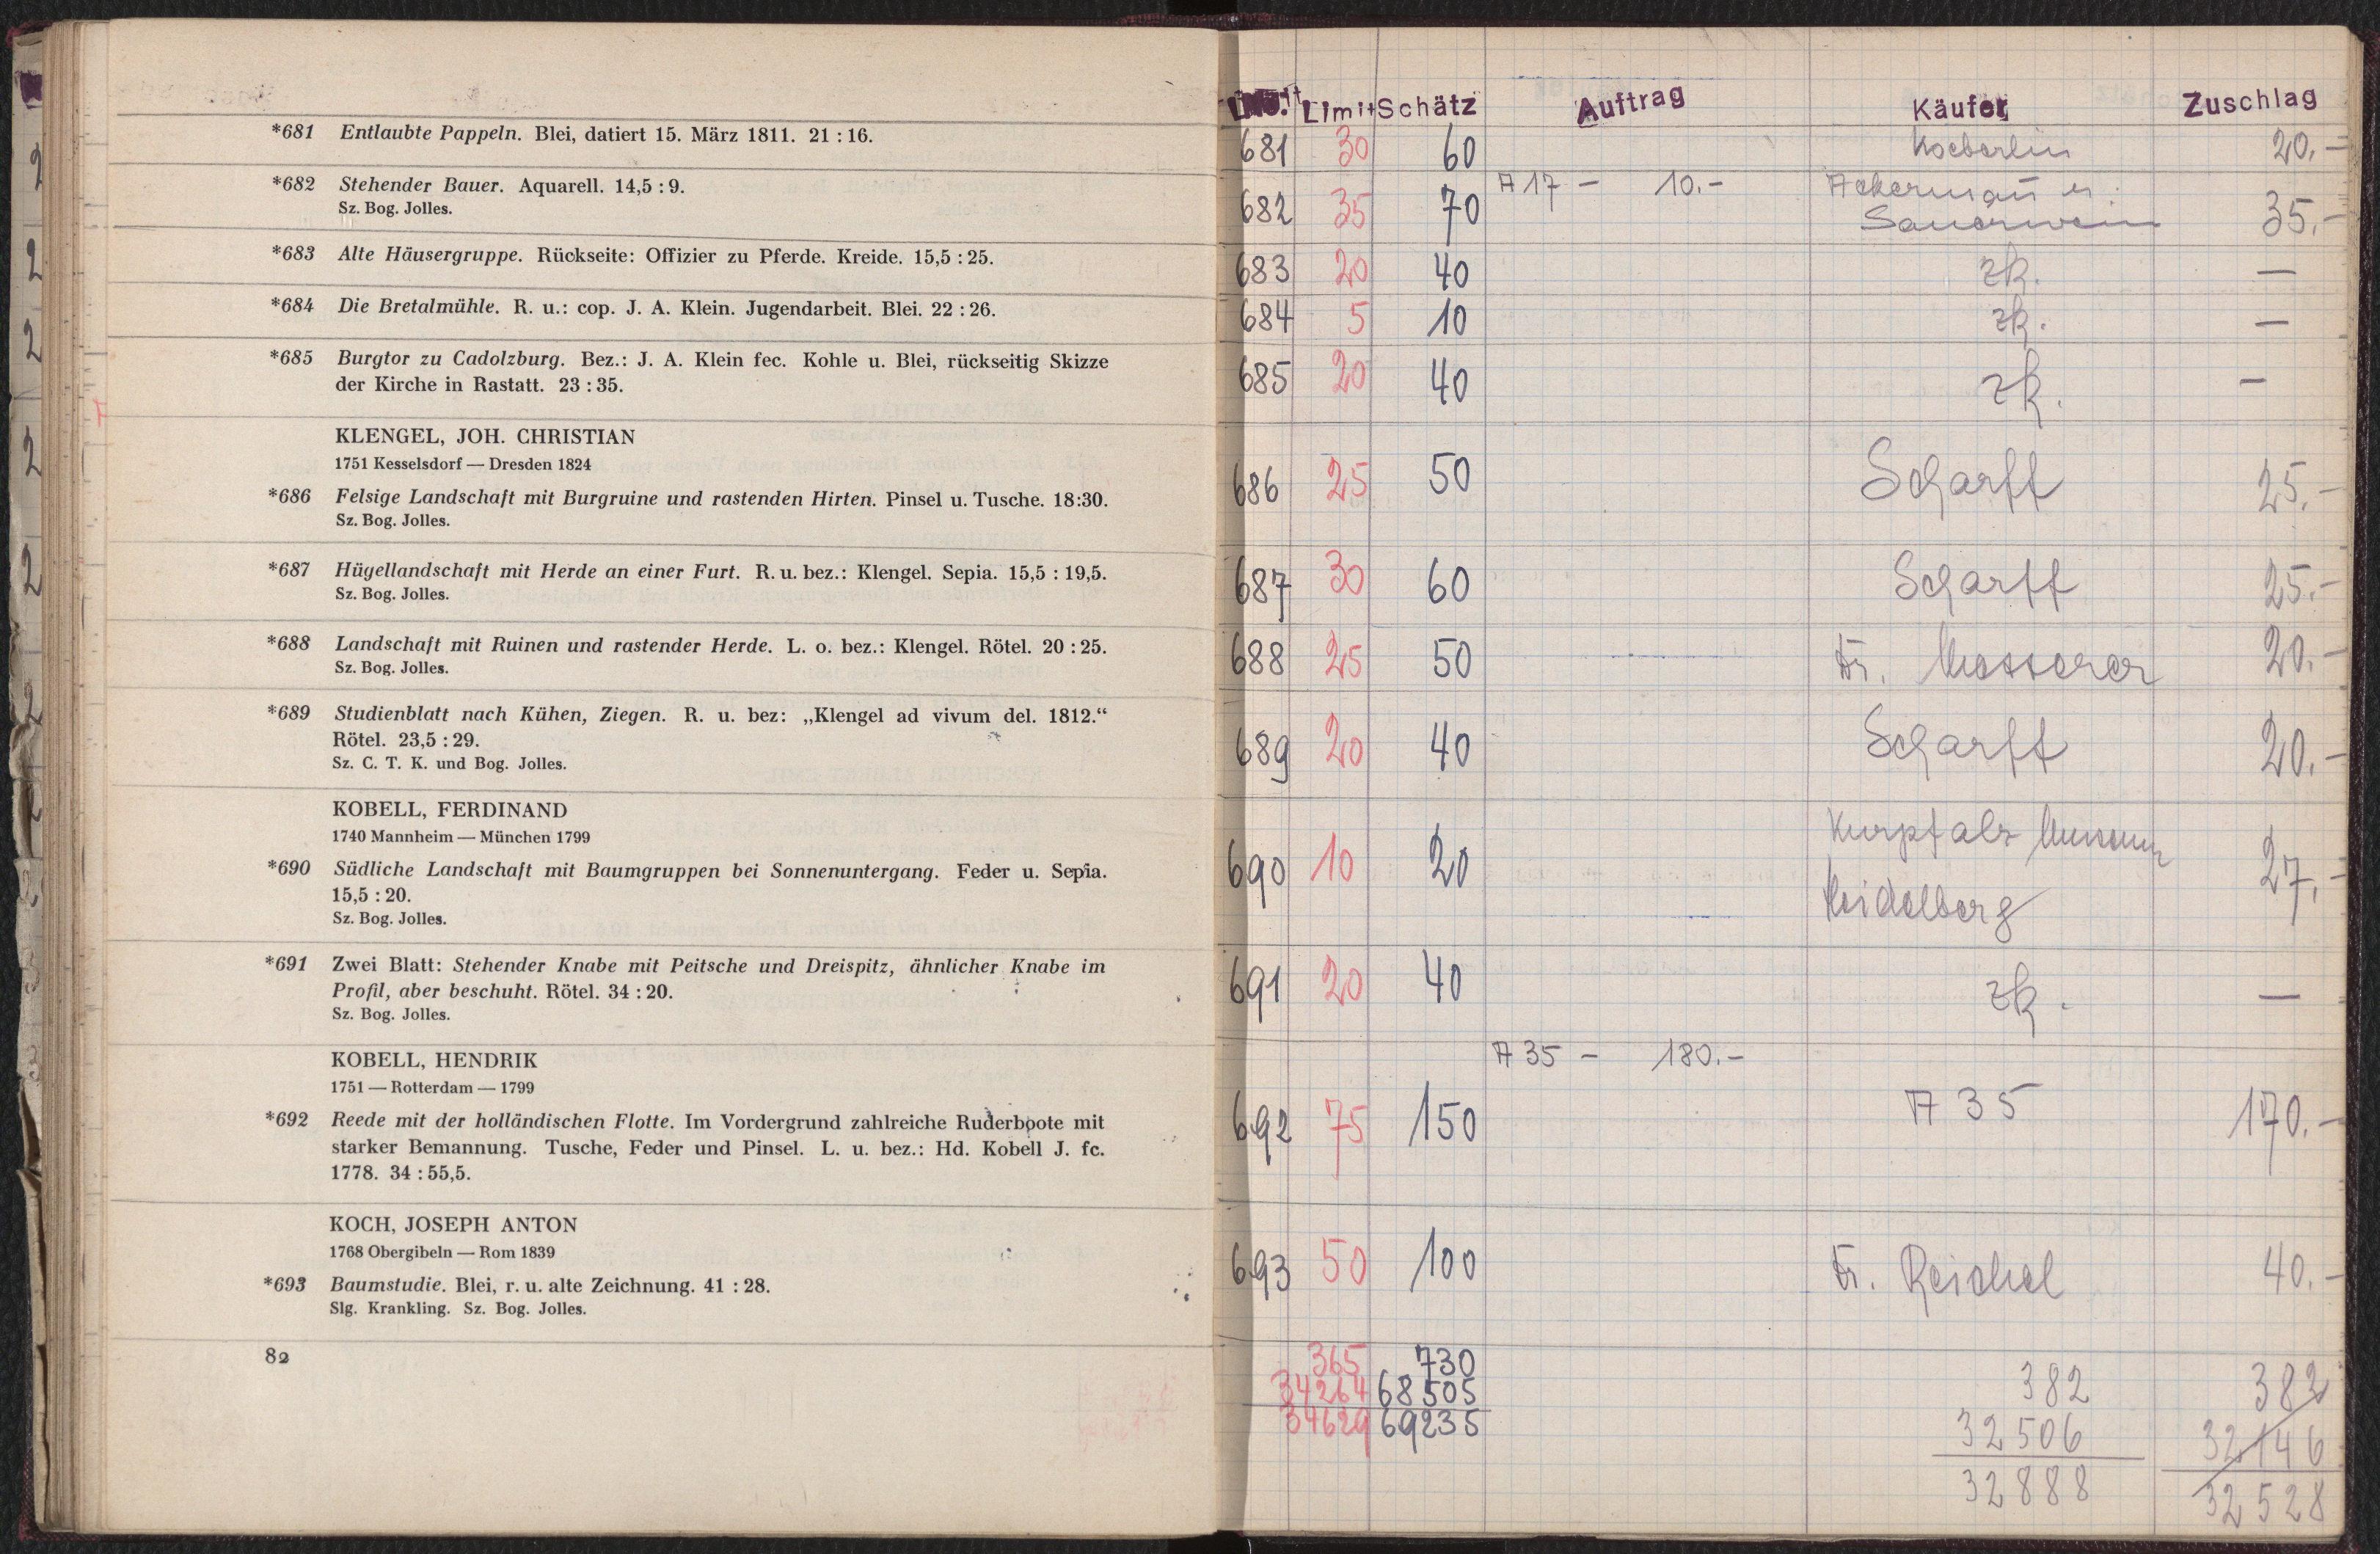 *681 Entlaubte Pappeln. Blei, datiert 15. März 1811. 21 : 16.
*682 Stehender Bauer. Aquarell. 14,5 : 9.
Sz. Bog. Jolles.
*683 Alte Häusergruppe. Rückseite: Offizier zu Pferde. Kreide. 15,5 : 25.
*684 Die Bretalmühle. R. u.: cop. J. A. Klein. Jugendarbeit. Blei. 22 : 26.
*685 Burgtor zu Cadolzburg. Bez.: J. A. Klein fec. Kohle u. Blei, rückseitig Skizze
der Kirche in Rastatt. 23 : 35.
KLENGEL, JOH. CHRISTIAN
1751 Kesselsdorf — Dresden 1824
*686 Felsige Landschaft mit Burgruine und rastenden Hirten. Pinsel u. Tusche. 18:30.
Sz. Bog. Jolles.
*687 Hügellandschaft mit Herde an einer Furt. R. u. bez.: Klengel. Sepia. 15,5 : 19,5.
Sz. Bog. Jolles.
*688 Landschaft mit Ruinen und rastender Herde. L. o. bez.: Klengel. Rötel. 20 : 25.
Sz. Bog. Jolles.
*689 Studienblatt nach Kühen, Ziegen. R. u. bez: „Klengel ad vivum del. 1812.“
Rötel. 23,5 : 29.
Sz. C. T. K. und Bog. Jolles.
KOBELL, FERDINAND
1740 Mannheim — München 1799
*690 Südliche Landschaft mit Baumgruppen bei Sonnenuntergang. Feder u. Sepia.
15,5 : 20.
Sz. Bog. Jolles.
*691 Zwei Blatt: Stehender Knabe mit Peitsche und Dreispitz, ähnlicher Knabe im
Profil, aber beschuht. Rötel. 34 : 20.
Sz. Bog. Jolles.
KOBELL, HENDRIK
1751 — Rotterdam — 1799
*692 Reede mit der holländischen Flotte. Im Vordergrund zahlreiche Ruderboote mit
starker Bemannung. Tusche, Feder und Pinsel. L. u. bez.: Hd. Kobell J. fc.
1778. 34 : 55,5.
KOCH, JOSEPH ANTON
1768 Obergibeln — Rom 1839
*693 Baumstudie. Blei, r. u. alte Zeichnung. 41 : 28.
Slg. Krankling. Sz. Bog. Jolles.
82
Limit Schätz Auftrag Käufer Zuschlag
681 30 60 Koeberlin 20.-
682 35 70 A 17 - 10.- Ackermann u.
Sauerwein 35.-
683 20 40 zk. —
684 5 10 zk. —
685 20 40 zk. —
686 25 50 Scharff 25.-
687 30 60 Scharff 25.-
688 25 50 Dr. Messerer 20.-
689 20 40 Scharff 20.-
690 10 20 Kurpfalz Museum
Heidelberg 27.-
691 20 40 zk. —
A 35 - 180.-
692 75 150 A 35 170.-
693 50 100 Dr. Reichel 40.-
365 730 382 382
34264 68505 32506 32146
34629 69235 32888 32528